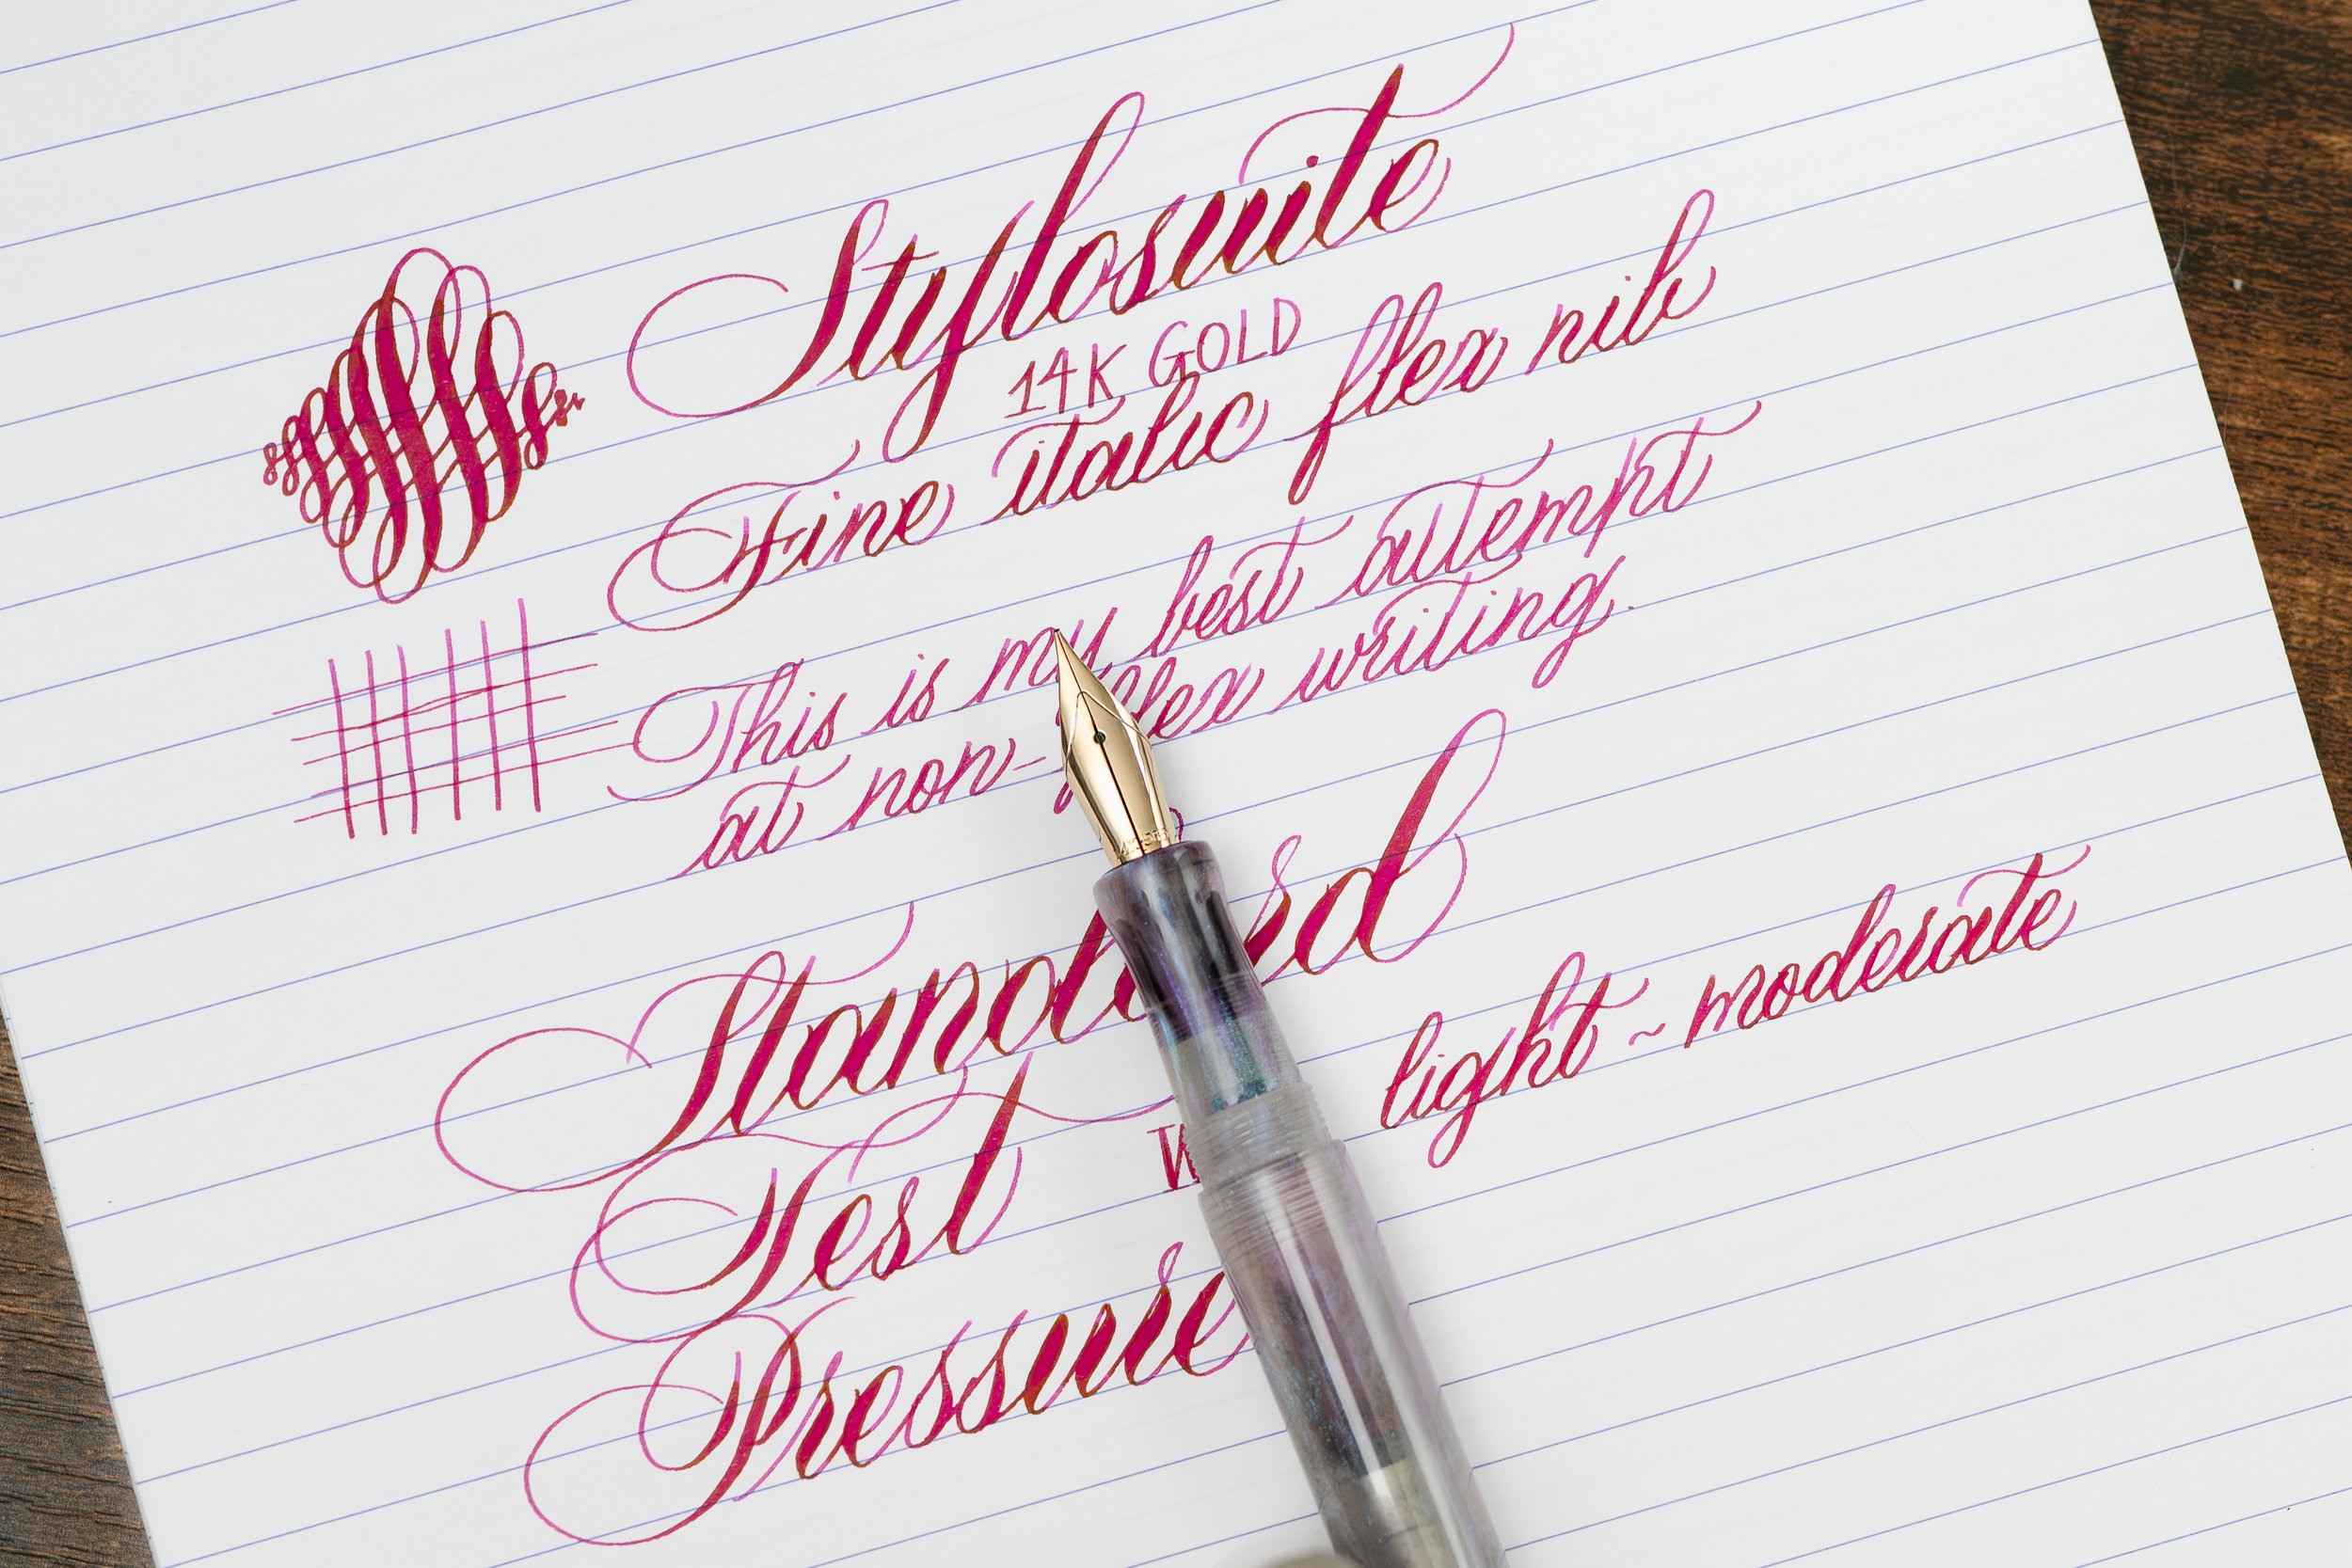 Stylosuite
14K GOLD
Fine italic flex nib
This is my best attempt
at non-flex writing.
Standard
light ~ moderate
Test
Pressure